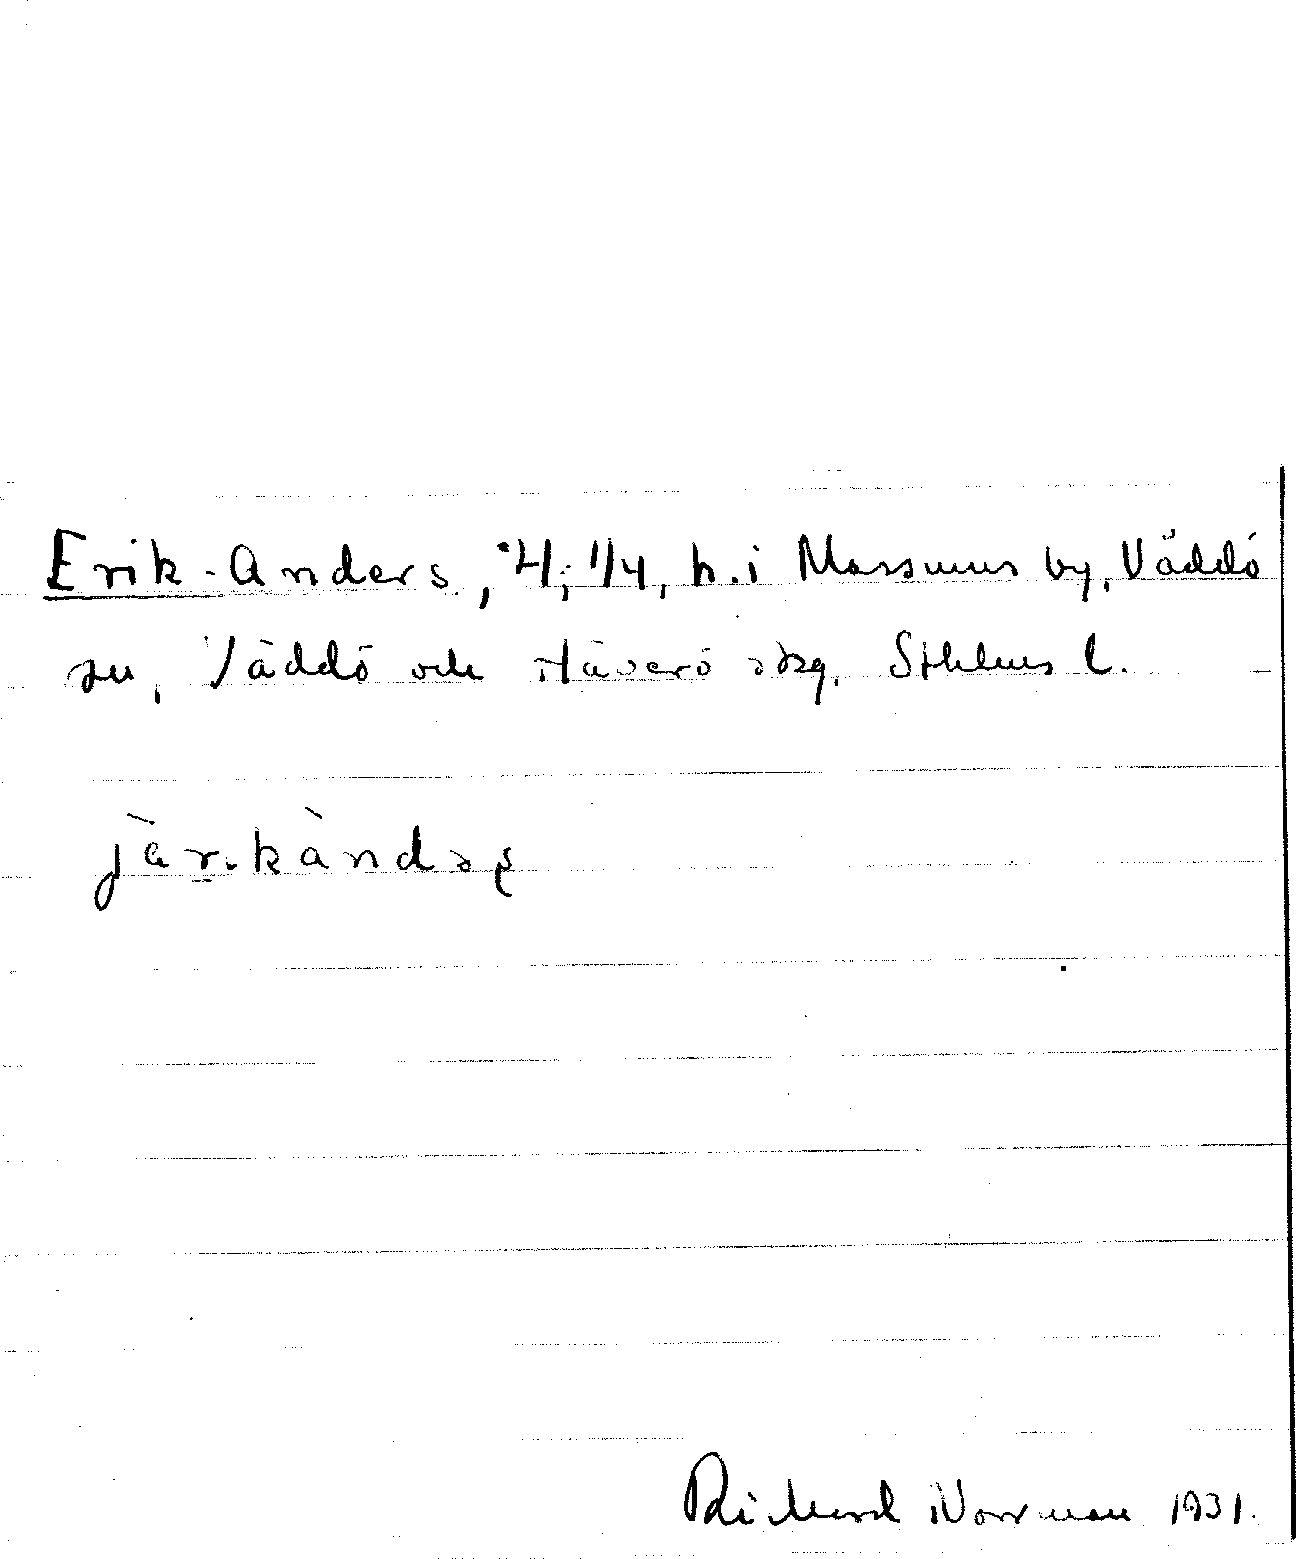 Erik-Anders, 4; 1/4, h. i Massums by, Väddö
sn, Väddö och Häverö skg, Sthlms l.
jàr.kàndəş
Richard Norrman 1931.